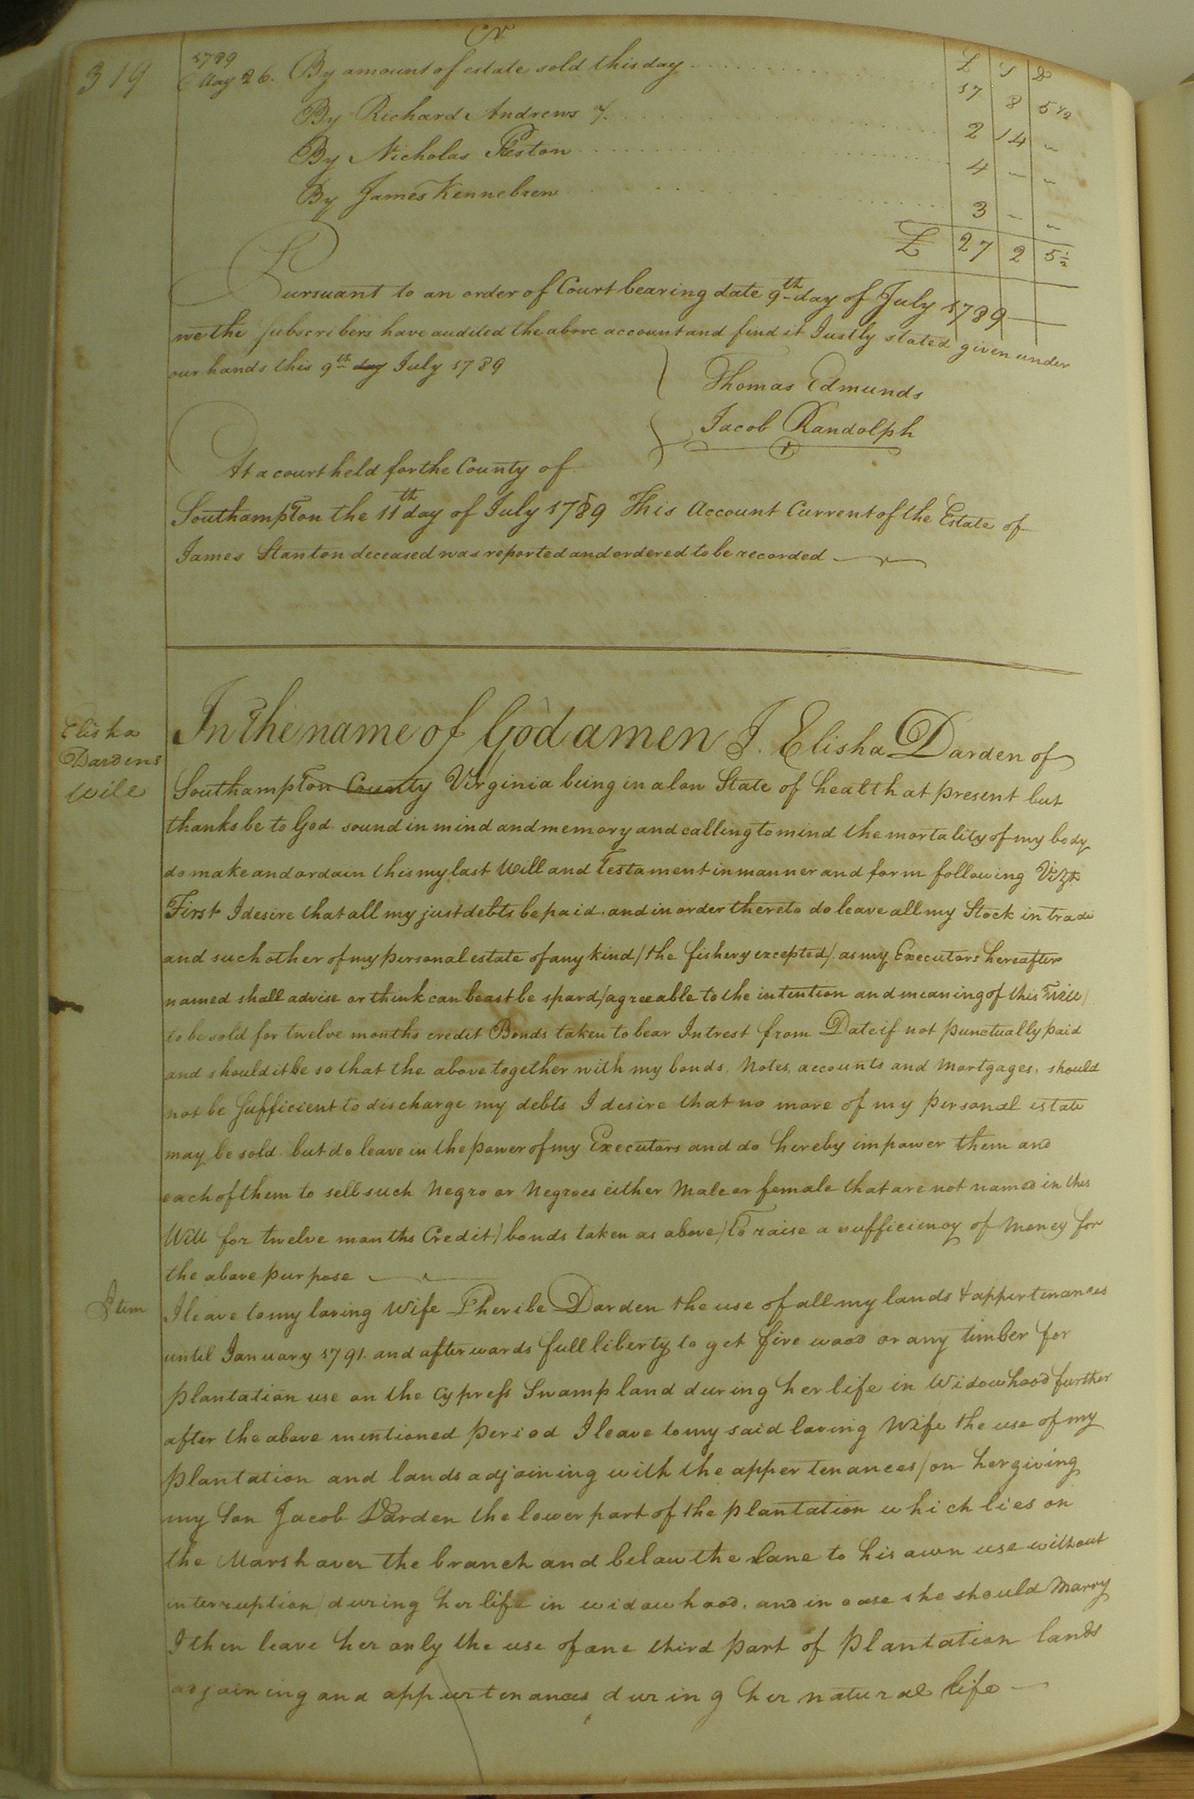 319
Cr
£ S D
1789
May 26. By amount of estate sold this day 17 8 5 1/2
By Richard Andrews 2 14 -
By Nicholas Preston 4 - -
By James Kennebrew 3 - -
£ 27 2 5 1/2
Pursuant to an order of Court bearing date 9th day of July 1789
we the subscribers have audited the above account and find it Justly stated given under
our hands this 9th day July 1789
Thomas Edmunds
Jacob Randolph
At a court held for the County of
Southampton the 11th day of July 1789 This Account Current of the Estate of
James Stanton deceased was reported and ordered to be recorded
Elisha
Dardens
Will
In the name of God amen I. Elisha Darden of
Southampton County Virginia being in a low State of health at present but
thanks be to God sound in mind and memory and calling to mind the mortality of my body
do make and ordain this my last Will and Testament in manner and form following Vizt
First I desire that all my just debts be paid. and in order thereto do leave all my Stock in trade
and such other of my personal estate of any kind (the fishery excepted) as my Executors hereafter
named shall advise or think can beast be spard (agreeable to the intention and meaning of this Will)
to be sold for twelve months credit Bonds taken to bear Intrest from Date if not punctually paid
and should it be so that the above together with my bonds, Notes, accounts and Mortgages, should
not be Sufficient to discharge my debts I desire that no more of my personal estate
may be sold. but do leave in the power of my Executors and do hereby impower them and
each of them to sell such Negro or Negroes either Male or female that are not named in this
Will for twelve months Credit (bonds taken as above) to raise a sufficiency of Money for
the above purpose
Item
I leave to my loving Wife Pheribe Darden the use of all my lands & appertenances
until January 1791. and afterwards full liberty to get fire wood or any timber for
plantation use on the Cypress Swamp land during her life in Widowhood further
after the above mentioned period I leave to my said loving Wife the use of my
plantation and lands adjoining with the appertenances (on her giving
my Son Jacob Darden the lower part of the plantation which lies on
the Marsh over the branch and below the lane to his own use without
interruption) during her life in widowhood. and in case she should Marry
I then leave her only the use of one third part of plantation lands
adjoining and appurtenances during her natural life